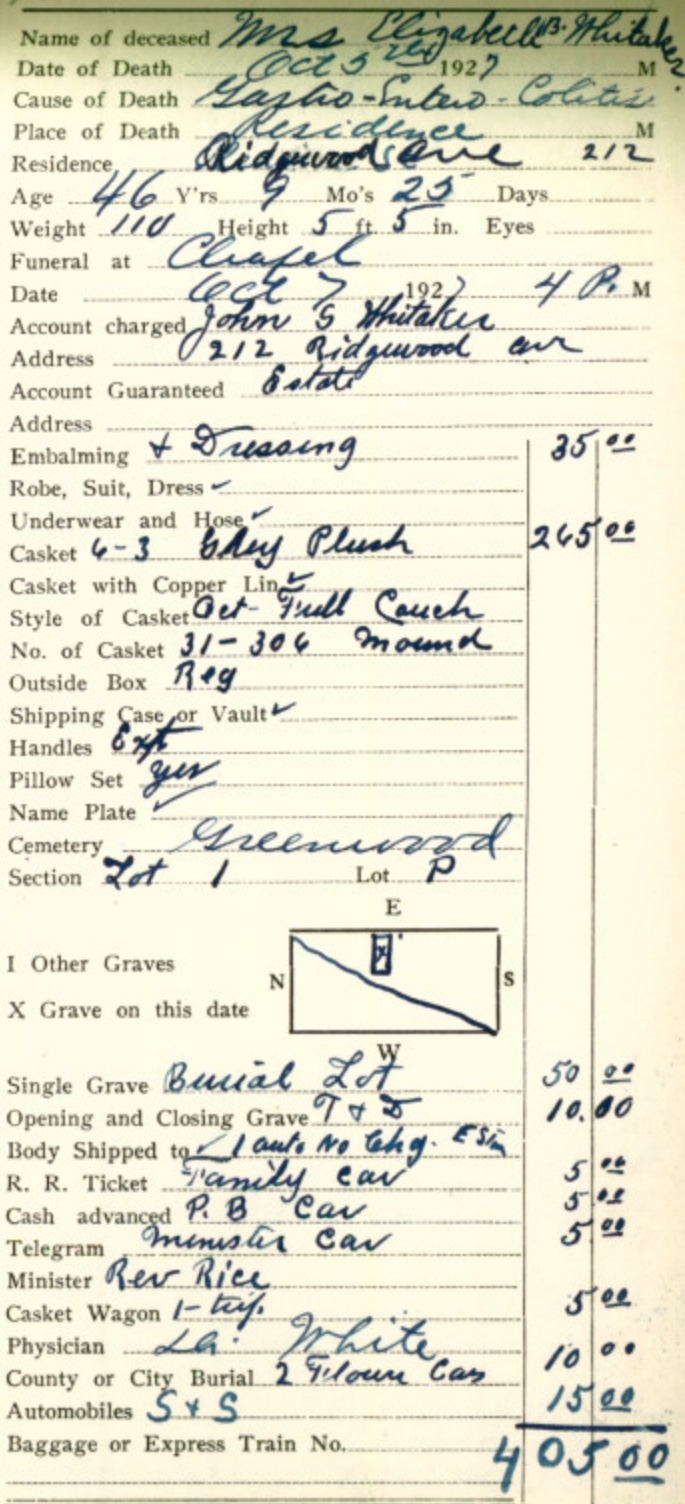 Name of deceased Mrs Elizabeth B. Whitaker
Date of Death Oct 5 1927 M
Cause of Death Gastro-Entero-Colitis
Place of Death Residence M
Residence Ridgewood Ave 212
Age 46 Y'rs 9 Mo's 25 Days
Weight 110 Height 5 ft 5 in. Eyes
Funeral at Chapel
Date Oct 7 1927 4 P. M
Account charged John S Whitaker
Address 212 Ridgewood ave
Account Guaranteed Estate
Address
Embalming + Dressing 35 00
Robe, Suit, Dress ✓
Underwear and Hose ✓
Casket 6-3 Grey Plush 265 00
Casket with Copper Lin ✓
Style of Casket Oct- Full Couch
No. of Casket 31-306 Mound
Outside Box Reg
Shipping Case or Vault ✓
Handles Ext
Pillow Set yes
Name Plate ✓
Cemetery Greenwood
Section Lot 1 Lot P
E
I Other Graves
N X S
X Grave on this date
W
Single Grave Burial Lot 50 00
Opening and Closing Grave T & D 10.00
Body Shipped to ✓ 1 auto No Chg.
R. R. Ticket Family Car 5 00
Cash advanced P. B Car 5 00
Telegram Minister Car 5 00
Minister Rev Rice
Casket Wagon 1-trip. 5 00
Physician Dr. White
County or City Burial 2 Flower Cars 10 00
Automobiles S & S 15 00
Baggage or Express Train No. 405 00